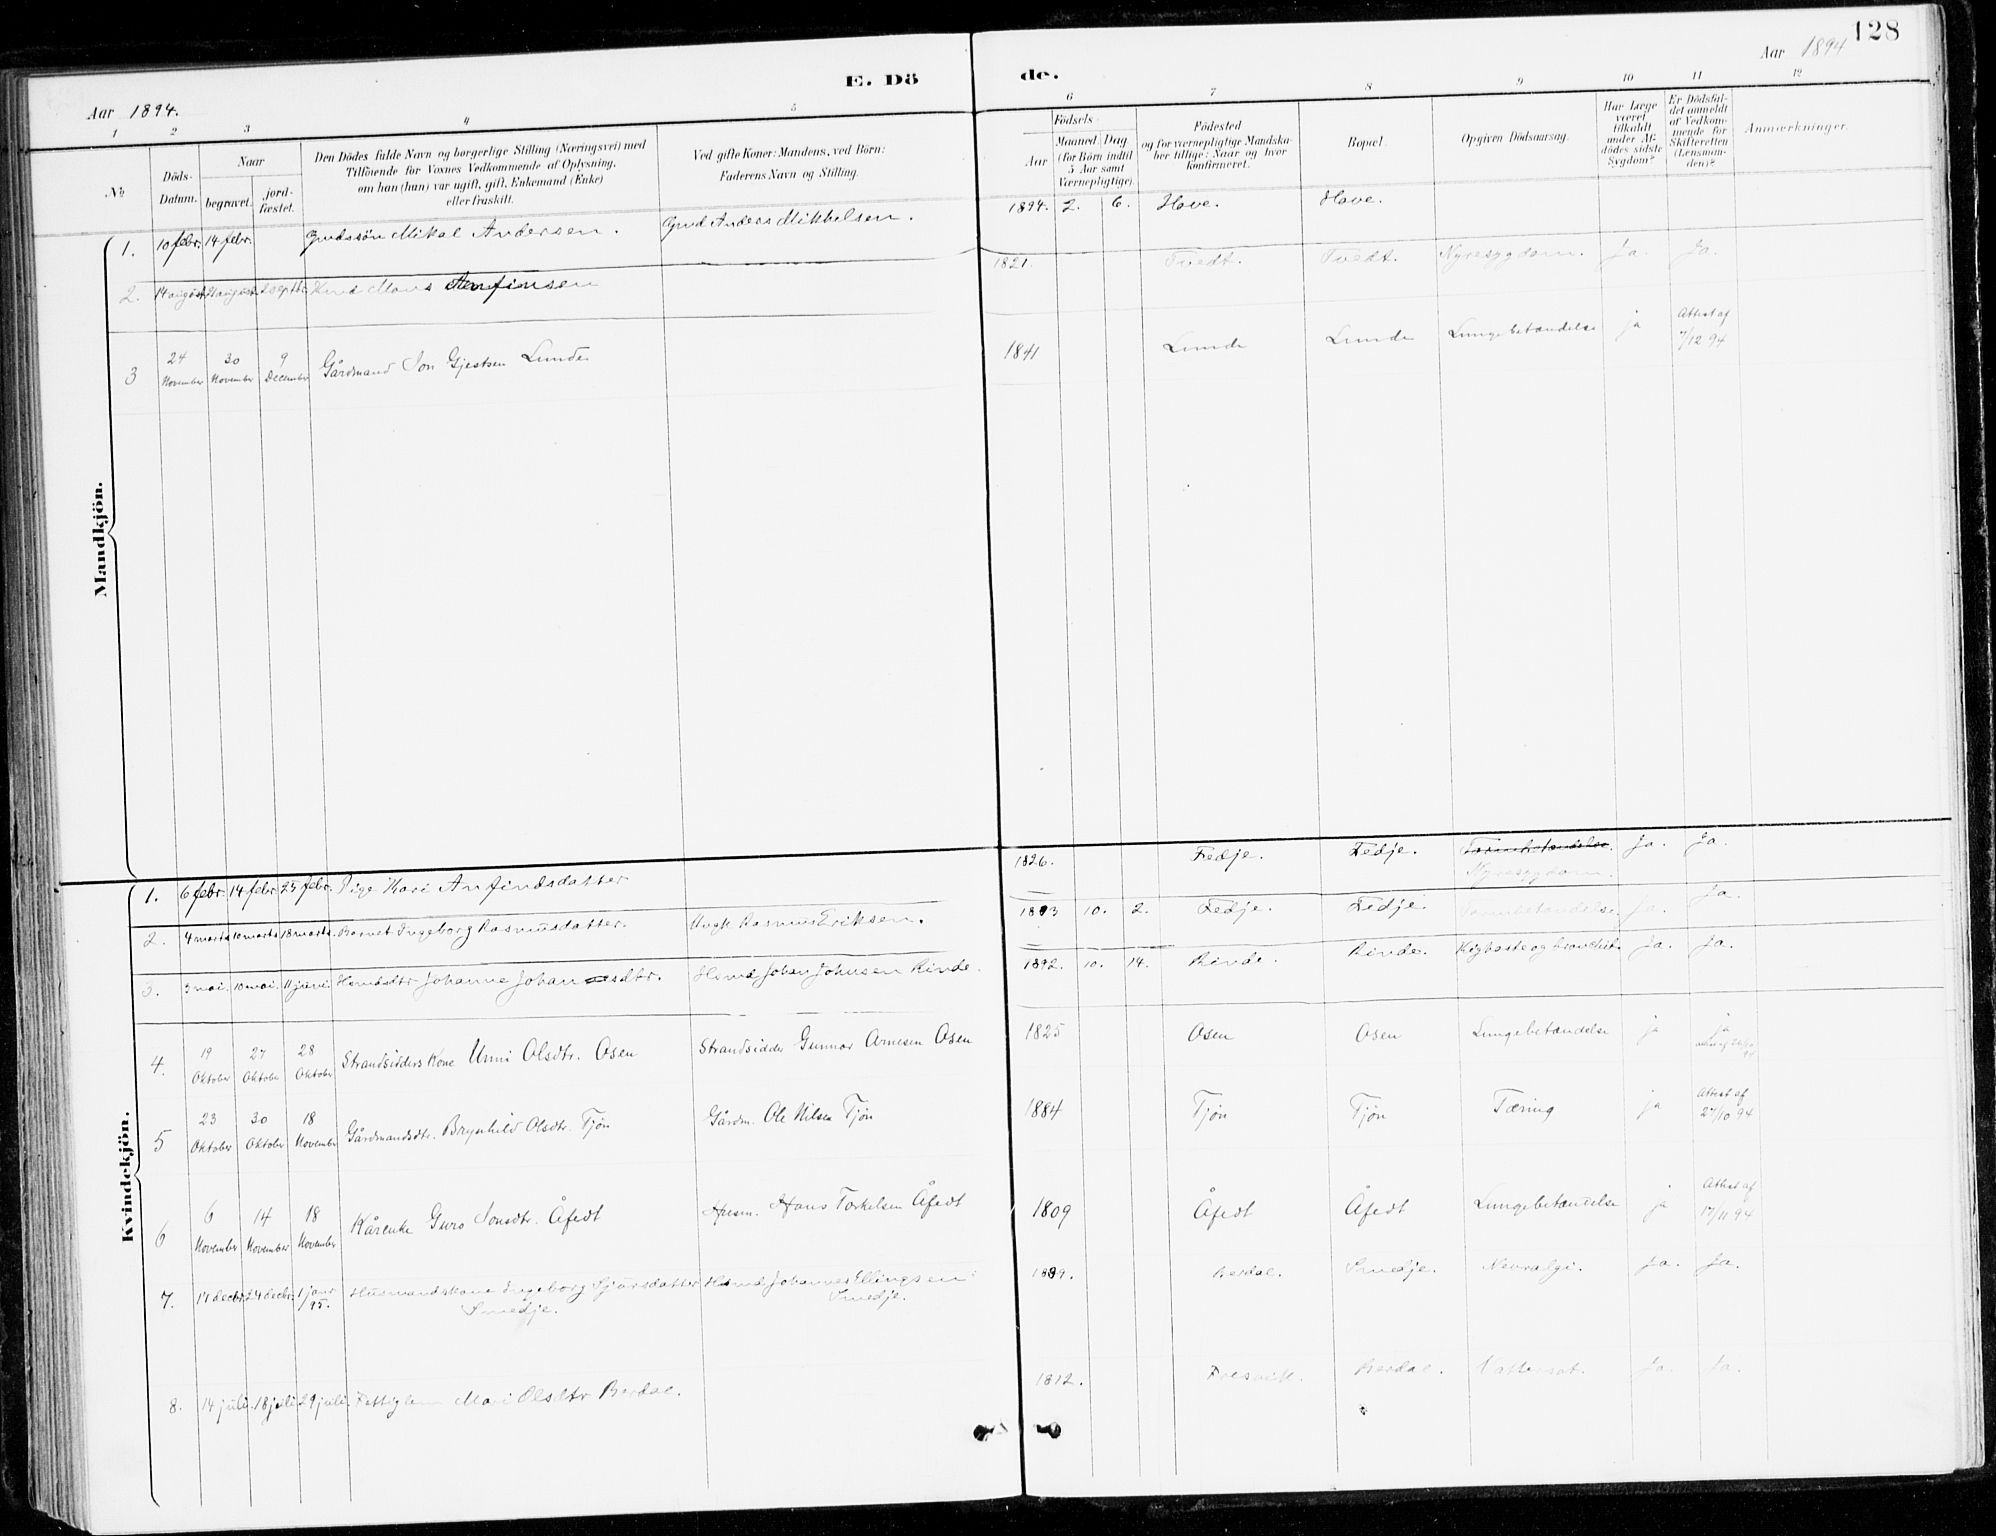 128
E. Dö de.
Aar 1894.
Aar 1894
1 2 3 4 5 6 7 8 9 10 11 12
№
Döds-Datum.
Naar
begravet.
jord-fæstet.
Den Dödes fulde Navn og borgerlige Stilling (Næringsvei) med
Tilföiende for Voxnes Vedkommende af Oplysning,
om han (hun) var ugift, gift, Enkemand (Enke)
eller fraskilt.
Ved gifte Koner: Mandens, ved Börn:
Faderens Navn og Stilling.
Födsels-
Aar
Maaned. Dag.
(for Börn indtil
5 Aar samt
Værnepligtige).
Födested
og for værnepligtige Mandska-
ber tillige: Naar og hvor
konfirmeret.
Bopæl.
Opgiven Dödsaarsag.
Har Læge
været
tilkaldt
under Af-
dödes sidste
Sygdom?
Er Dödsfal-
det anmeldt
af Vedkom-
mende for
Skifteretten
(Lensman-
den)?
Anmærkninger.
Mandkjön.
1. 10 febr. 14 febr. Gmdssön Mikal Andersen. Gmd Anders Mikkelsen. 1894. 2. 6. Hove. Hove.
2. 14 august. 21 august. 2 septbr. Mons Anfinsen 1821. Tvedt. Tvedt. Nyresygdom. Ja. Ja.
3 24 November 30 November 9 December Gårdmand Jon Gjestsen Lunde 1841 Lunde Lunde Lungebetændelse ja Attest af 7/12 94
Kvindekjön.
1. 6 febr. 14 febr. 25 febr. Pige Kari Anfindsdatter 1826. Fedje. Fedje. Nyresygdom. Ja. Ja.
2. 4 marts 10 marts 18 marts. Barnet Ingeborg Rasmusdatter. Ungk Rasmus Eriksen. 1893 10. 2. Fedje. Fedje. Ja. Ja.
3. 3 mai. 10 mai. 11 juni. Hsmdsdtr Johanne Johansdtr. Hsmd Johan Johnsen Rinde. 1892. 10. 14. Rinde. Rinde. Kighoste og bronchit. Ja. Ja.
4. 19 Oktober 27 Oktober 28 Oktober Strandsidders Kone Unni Olsdtr. Osen Strandsidder Gunnar Arnesen Osen 1825 Osen Osen Lungebetændelse ja ja
5 23 Oktober 30 Oktober 18 November Gårdmandsdtr. Brynhild Olsdtr. Tjön Gårdm. Ole Nilsen Tjön 1884 Tjön Tjön Tæring ja Attest af 27/10 94
6 6 November 14 November 18 November Kårenke Guro Jonsdtr. Åfedt Husm. Hans Torkelsen Åfedt 1809 Åfedt Åfedt Lungebetændelse ja Attest af 17/11 94
7. 17 decbr. 24 decbr. 1 janr 95. Husmandskone Ingeborg Sjursdatter Smedje. Hsmd Johannes Ellingsen Smedje. Berdal. Smedje. Nevralgi. Ja. Ja.
8. 14 juli. 18 juli. 29 juli. Fattiglem Mari Olsdtr Berdal. 1812. Fresvik. Berdal. Vattersot. Ja. Ja.